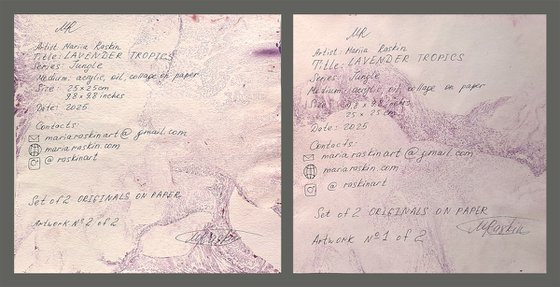 MR
Artist: Mariia Raskin
Title: LAVENDER TROPICS
Series: Jungle
Medium: acrylic, oil, collage on paper
Size: 25 x 25 cm
9.8 x 9.8 inches
Date: 2025
Contacts:
mariaraskinart@gmail.com
mariaraskin.com
@raskinart
Set of 2 ORIGINALS ON PAPER
Artwork № 2 of 2
MRaskin
MR
Artist: Mariia Raskin
Title: LAVENDER TROPICS
Series: Jungle
Medium: acrylic, oil, collage on paper
Size: 9.8 x 9.8 inches
25 x 25 cm
Date: 2025
Contacts:
mariaraskinart@gmail.com
mariaraskin.com
@raskinart
Set of 2 ORIGINALS ON PAPER
Artwork № 1 of 2
MRaskin